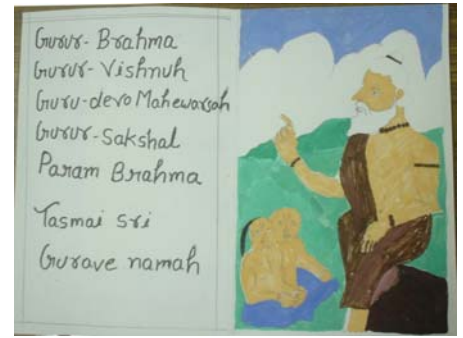 Gurur- Brahma
Gurur- Vishnuh
Guru-devo Mahewarsah
Gurur-Sakshal
Param Brahma
Tasmai sri
Gurave namah